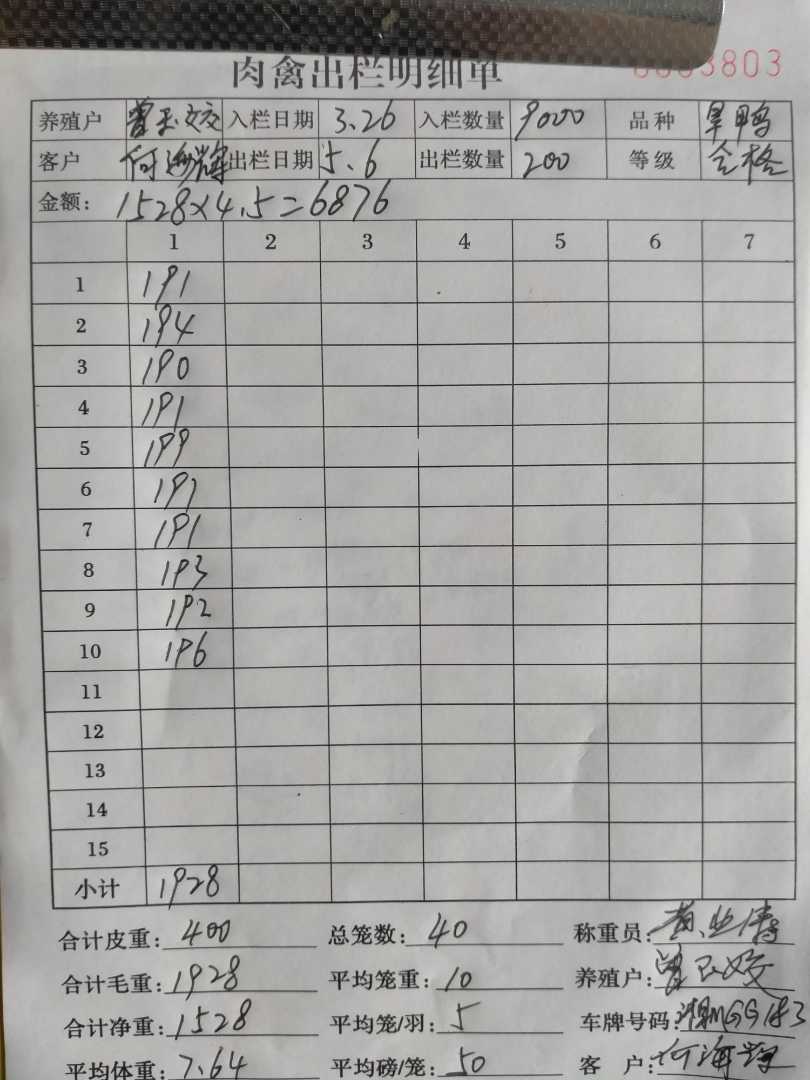 肉禽出栏明细单 3803
养殖户 曾玉姣 入栏日期 3.26 入栏数量 9000 品种 旱鸭
客户 何海辉 出栏日期 5.6 出栏数量 200 等级 合格
金额: 1528×4.5=6876
1 2 3 4 5 6 7
1 191
2 194
3 190
4 191
5 199
6 191
7 191
8 193
9 192
10 196
11
12
13
14
15
小计 1928
合计皮重: 400 总笼数: 40 称重员:
合计毛重: 1928 平均笼重: 10 养殖户: 曾玉姣
合计净重: 1528 平均笼/羽: 5 车牌号码: 湘MGG183
平均体重: 7.64 平均磅/笼: 50 客户: 何海辉